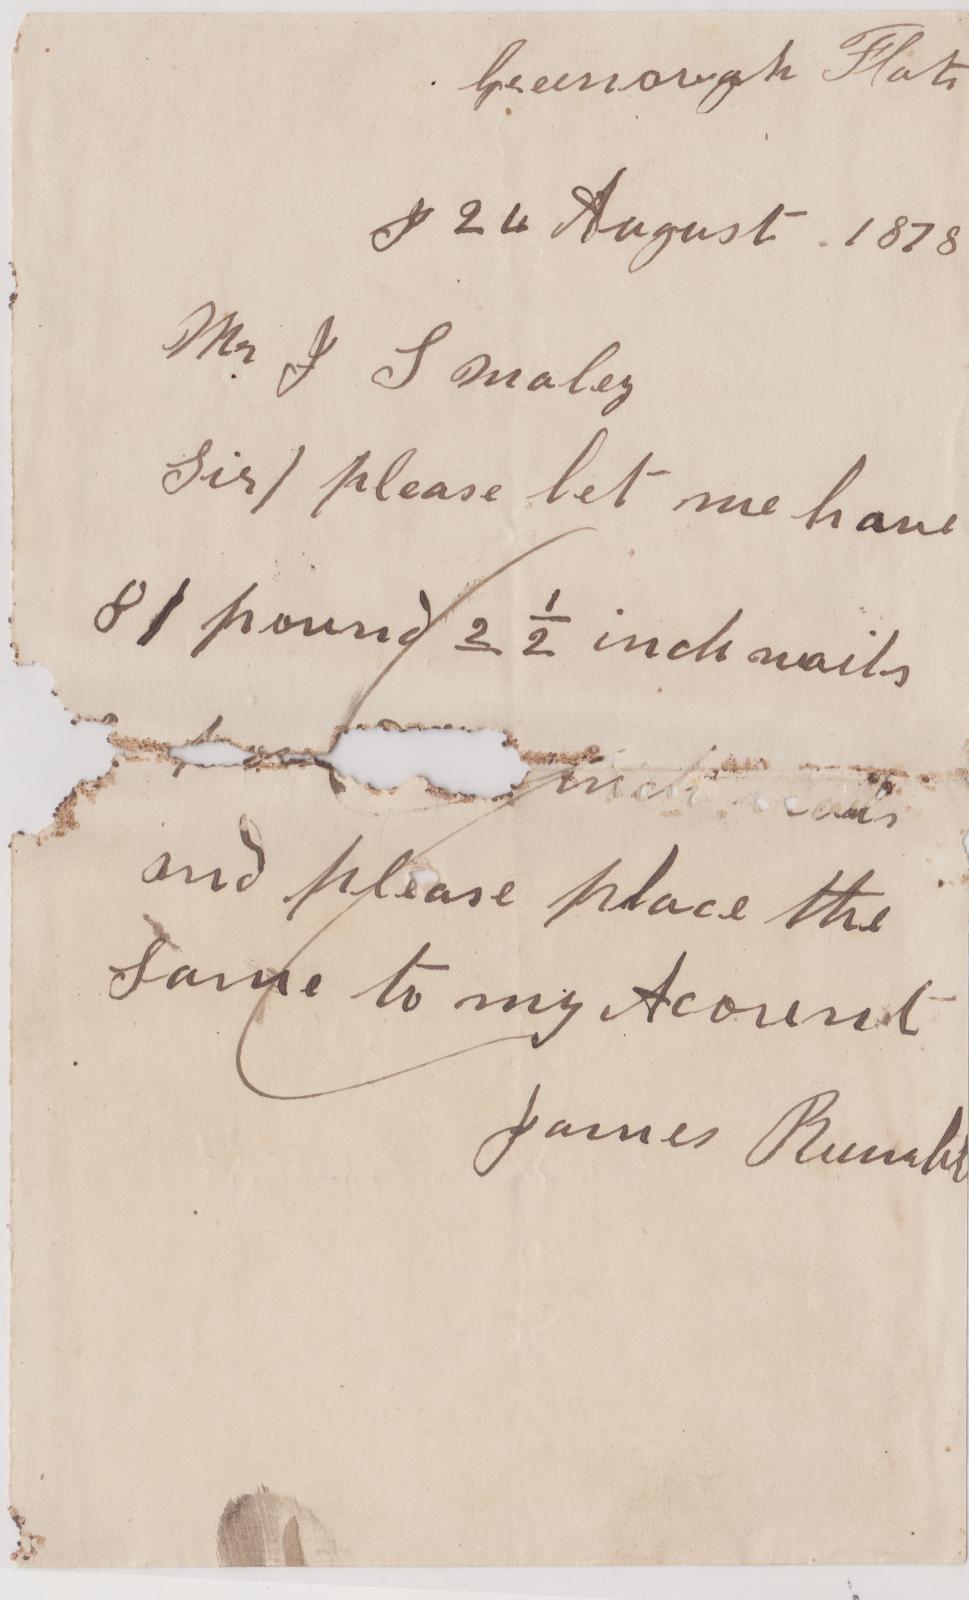 Greenough Flats
J 24 August . 1878
Mr J S Maley
Sir/ please let me have
8/ pound 2 1/2 inch nails
inch nails
and please place the
same to my Acount
James